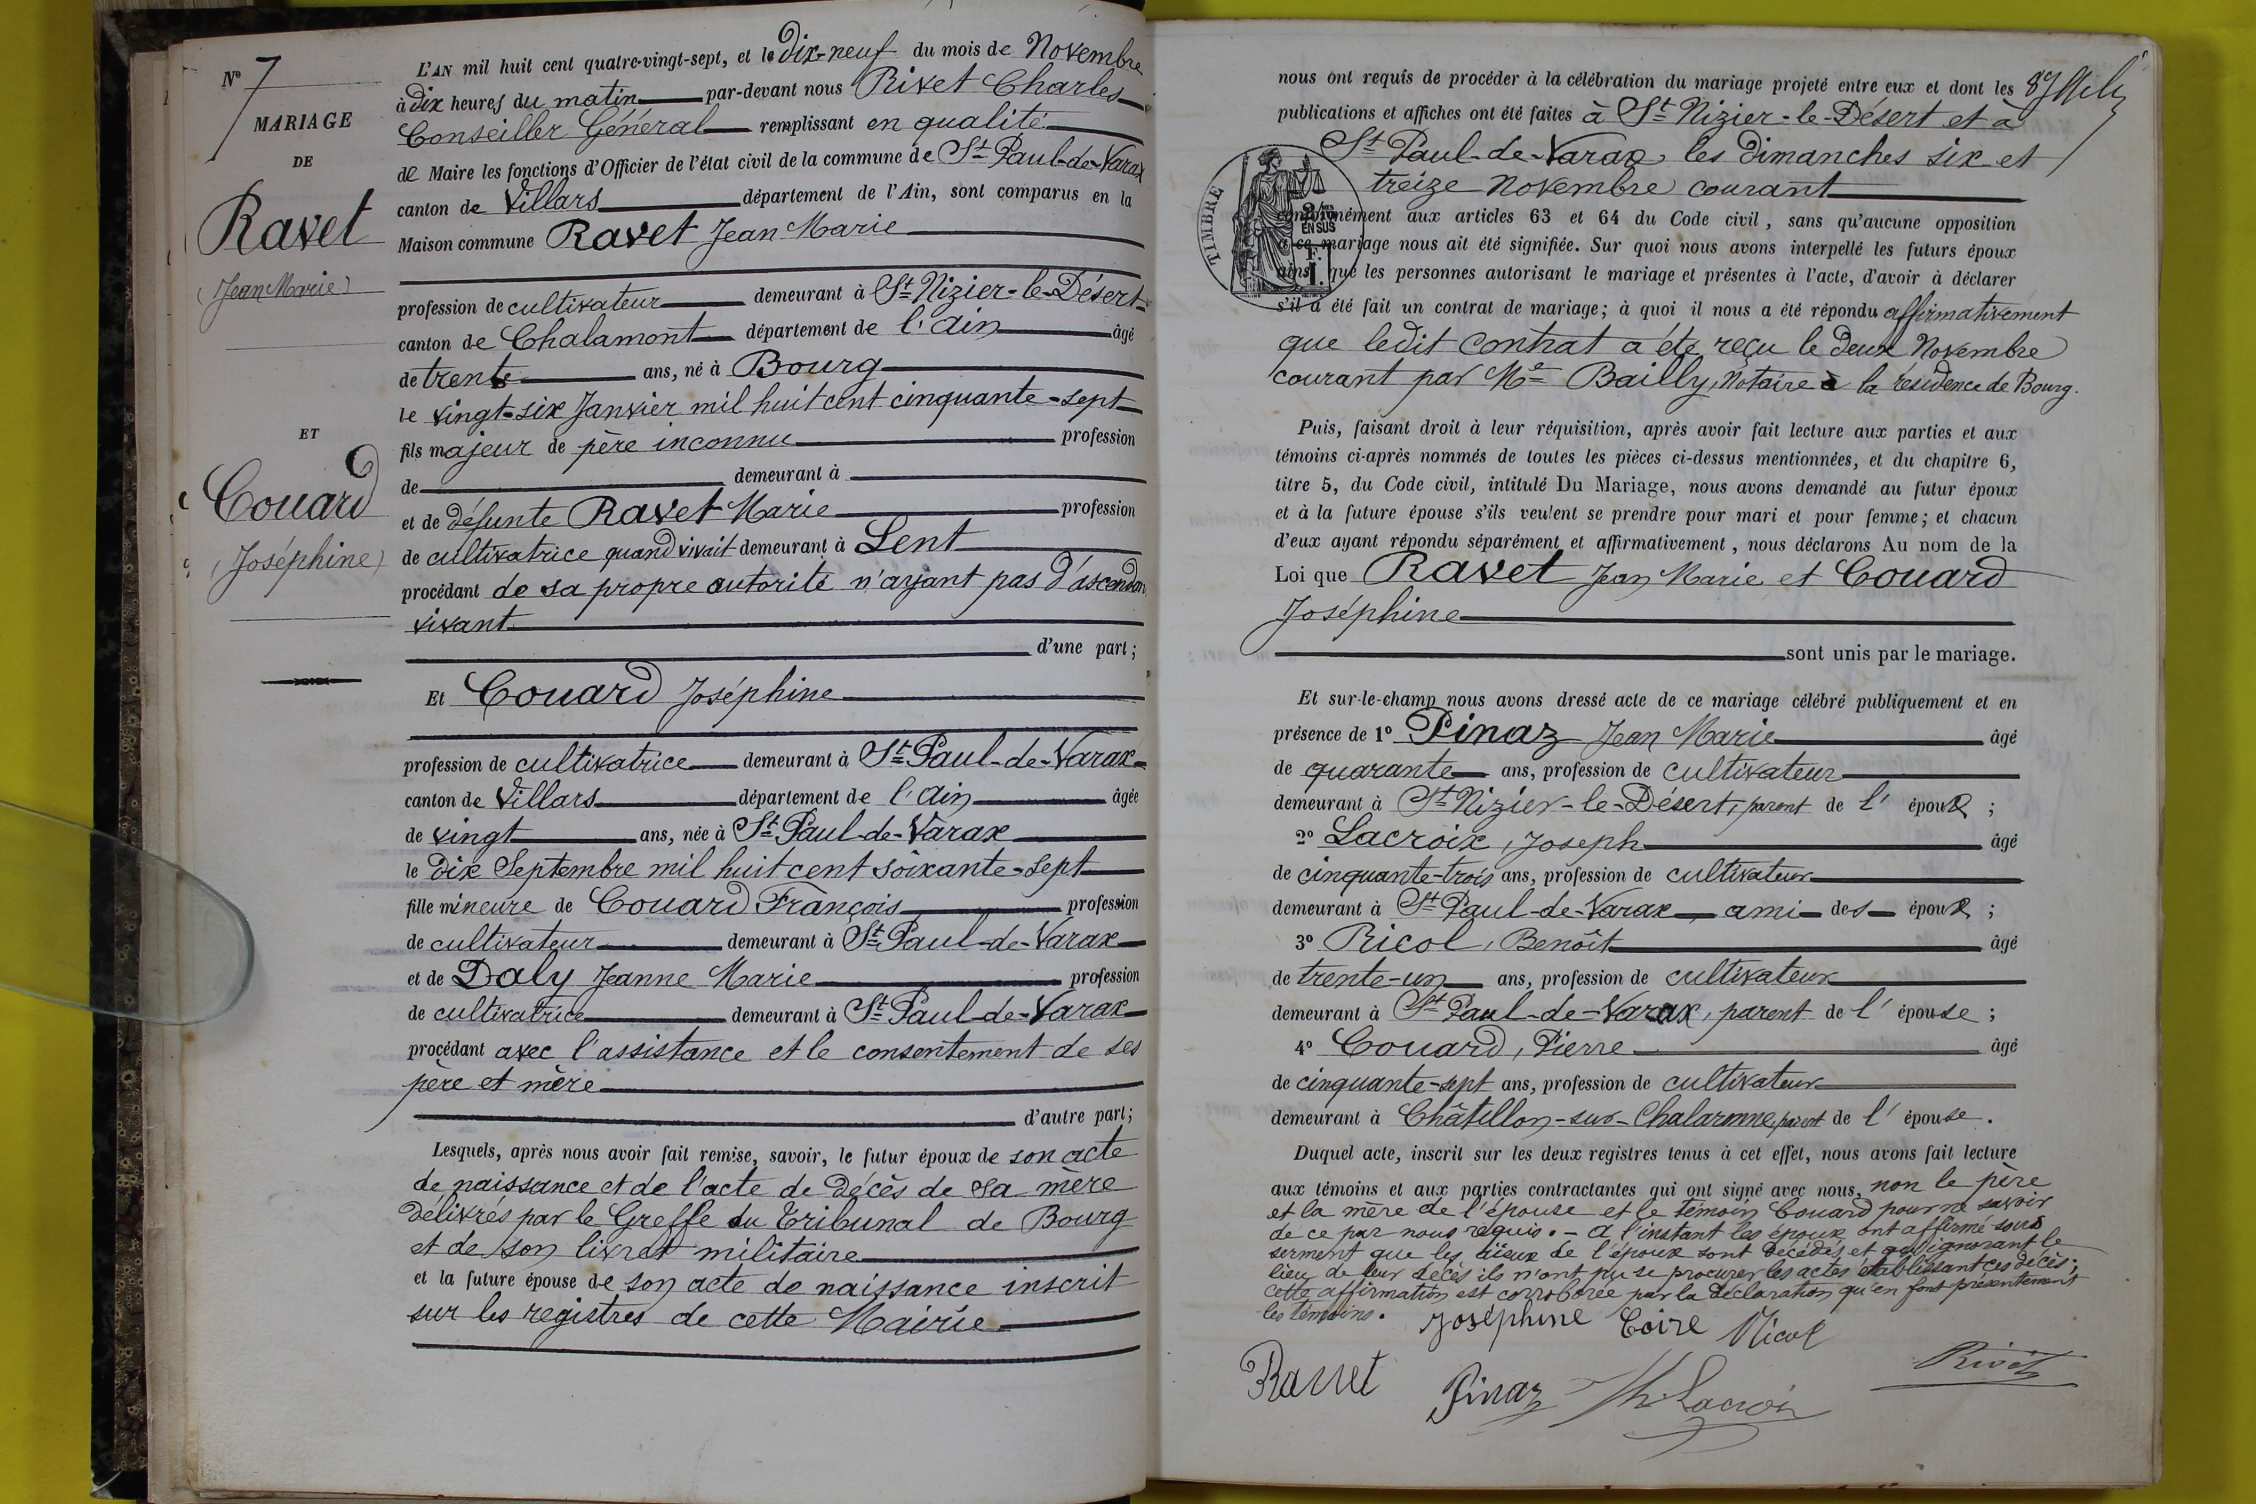 N° 7
MARIAGE
DE
Ravet
(Jean Marie)
ET
Couard
(Joséphine)
L'AN mil huit cent quatre-vingt-sept, et le dix-neuf du mois de Novembre
à dix heures du matin par-devant nous Rivet Charles
Conseiller Général remplissant en qualité
de Maire les fonctions d'Officier de l'état civil de la commune de St Paul-de-Varax
canton de Villars département de l'Ain, sont comparus en la
Maison commune Ravet Jean Marie
profession de cultivateur demeurant à St Nizier-le-Désert
canton de Chalamont département de l'Ain âgé
de trente ans, né à Bourg
le vingt-six Janvier mil huit cent cinquante-sept
fils majeur de père inconnu profession
de demeurant à
et de défunte Ravet Marie profession
de cultivatrice quand vivait demeurant à Lent
procédant de sa propre autorité n'ayant pas d'ascendon
vivant
d'une part;
Et Couard Joséphine
profession de cultivatrice demeurant à St Paul-de-Varax
canton de Villars département de l'Ain âgée
de vingt ans, née à St Paul-de-Varax
le dix Septembre mil huit cent soixante-sept
fille mineure de Couard François profession
de cultivateur demeurant à St Paul-de-Varax
et de Daly Jeanne Marie profession
de cultivatrice demeurant à St Paul-de-Varax
procédant avec l'assistance et le consentement de ses
père et mère
d'autre part;
Lesquels, après nous avoir fait remise, savoir, le futur époux de son acte
de naissance et de l'acte de décès de sa mère
délivrés par le Greffe du Tribunal de Bourg
et de son livret militaire
et la future épouse de son acte de naissance inscrit
sur les registres de cette Mairie
nous ont requis de procéder à la célébration du mariage projeté entre eux et dont les
publications et affiches ont été faites à St Nizier-le-Désert et à
St Paul-de-Varax, les dimanches six et
treize Novembre courant
TIMBRE
2/10es EN SUS
F.
1.
conformément aux articles 63 et 64 du Code civil, sans qu'aucune opposition
à ce mariage nous ait été signifiée. Sur quoi nous avons interpellé les futurs époux
ainsi que les personnes autorisant le mariage et présentes à l'acte, d'avoir à déclarer
s'il a été fait un contrat de mariage; à quoi il nous a été répondu affirmativement
que ledit contrat a été reçu le deux Novembre
courant par Me Bailly, Notaire à la résidence de Bourg.
Puis, faisant droit à leur réquisition, après avoir fait lecture aux parties et aux
témoins ci-après nommés de toutes les pièces ci-dessus mentionnées, et du chapitre 6,
titre 5, du Code civil, intitulé Du Mariage, nous avons demandé au futur époux
et à la future épouse s'ils veulent se prendre pour mari et pour femme; et chacun
d'eux ayant répondu séparément et affirmativement, nous déclarons Au nom de la
Loi que Ravet Jean Marie et Couard
Joséphine
sont unis par le mariage.
Et sur-le-champ nous avons dressé acte de ce mariage célébré publiquement et en
présence de 1° Pinaz Jean Marie âgé
de quarante ans, profession de cultivateur
demeurant à St Nizier-le-Désert, parent de l'époux;
2° Lacroix, Joseph âgé
de cinquante-trois ans, profession de cultivateur
demeurant à St Paul-de-Varax ami des époux;
3° Ricol, Benoît âgé
de trente-un ans, profession de cultivateur
demeurant à St Paul-de-Varax, parent de l'épouse;
4° Couard, Pierre âgé
de cinquante-sept ans, profession de cultivateur
demeurant à Châtillon-sur-Chalaronne, parent de l'épouse.
Duquel acte, inscrit sur les deux registres tenus à cet effet, nous avons fait lecture
aux témoins et aux parties contractantes qui ont signé avec nous, non le père
et la mère de l'épouse et le témoin Couard pour ne savoir
de ce par nous requis. - A l'instant les époux ont affirmé sous
serment que les aïeux de l'époux sont décédés et qu'ignorant le
lieu de leur décès ils n'ont pu se procurer les actes établissant ces décès;
cette affirmation est corroborée par la déclaration qu'en font présentement
les témoins.
Joséphine Coire Ricol
Ravet Pinaz Lacroix Rivet